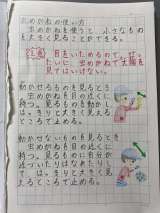 虫めがねの使い方
虫めがねを使うと、小さなもの
を大きく見ることができる。
注意 目をいためるので、ぜっ
たいに、虫めがねで太陽を
見てはいけない。
動かせるものを見るとき
虫めがねを目の近くに
持つ。見るものを動かし
て、はっきりと大きく見え
るところで止める。
動かせないものを見るとき
虫めがねを目の近くに
持つ。見るものに自分が
近づいたりはなれたりして、
はっきりと大きく見え
るところで止める。